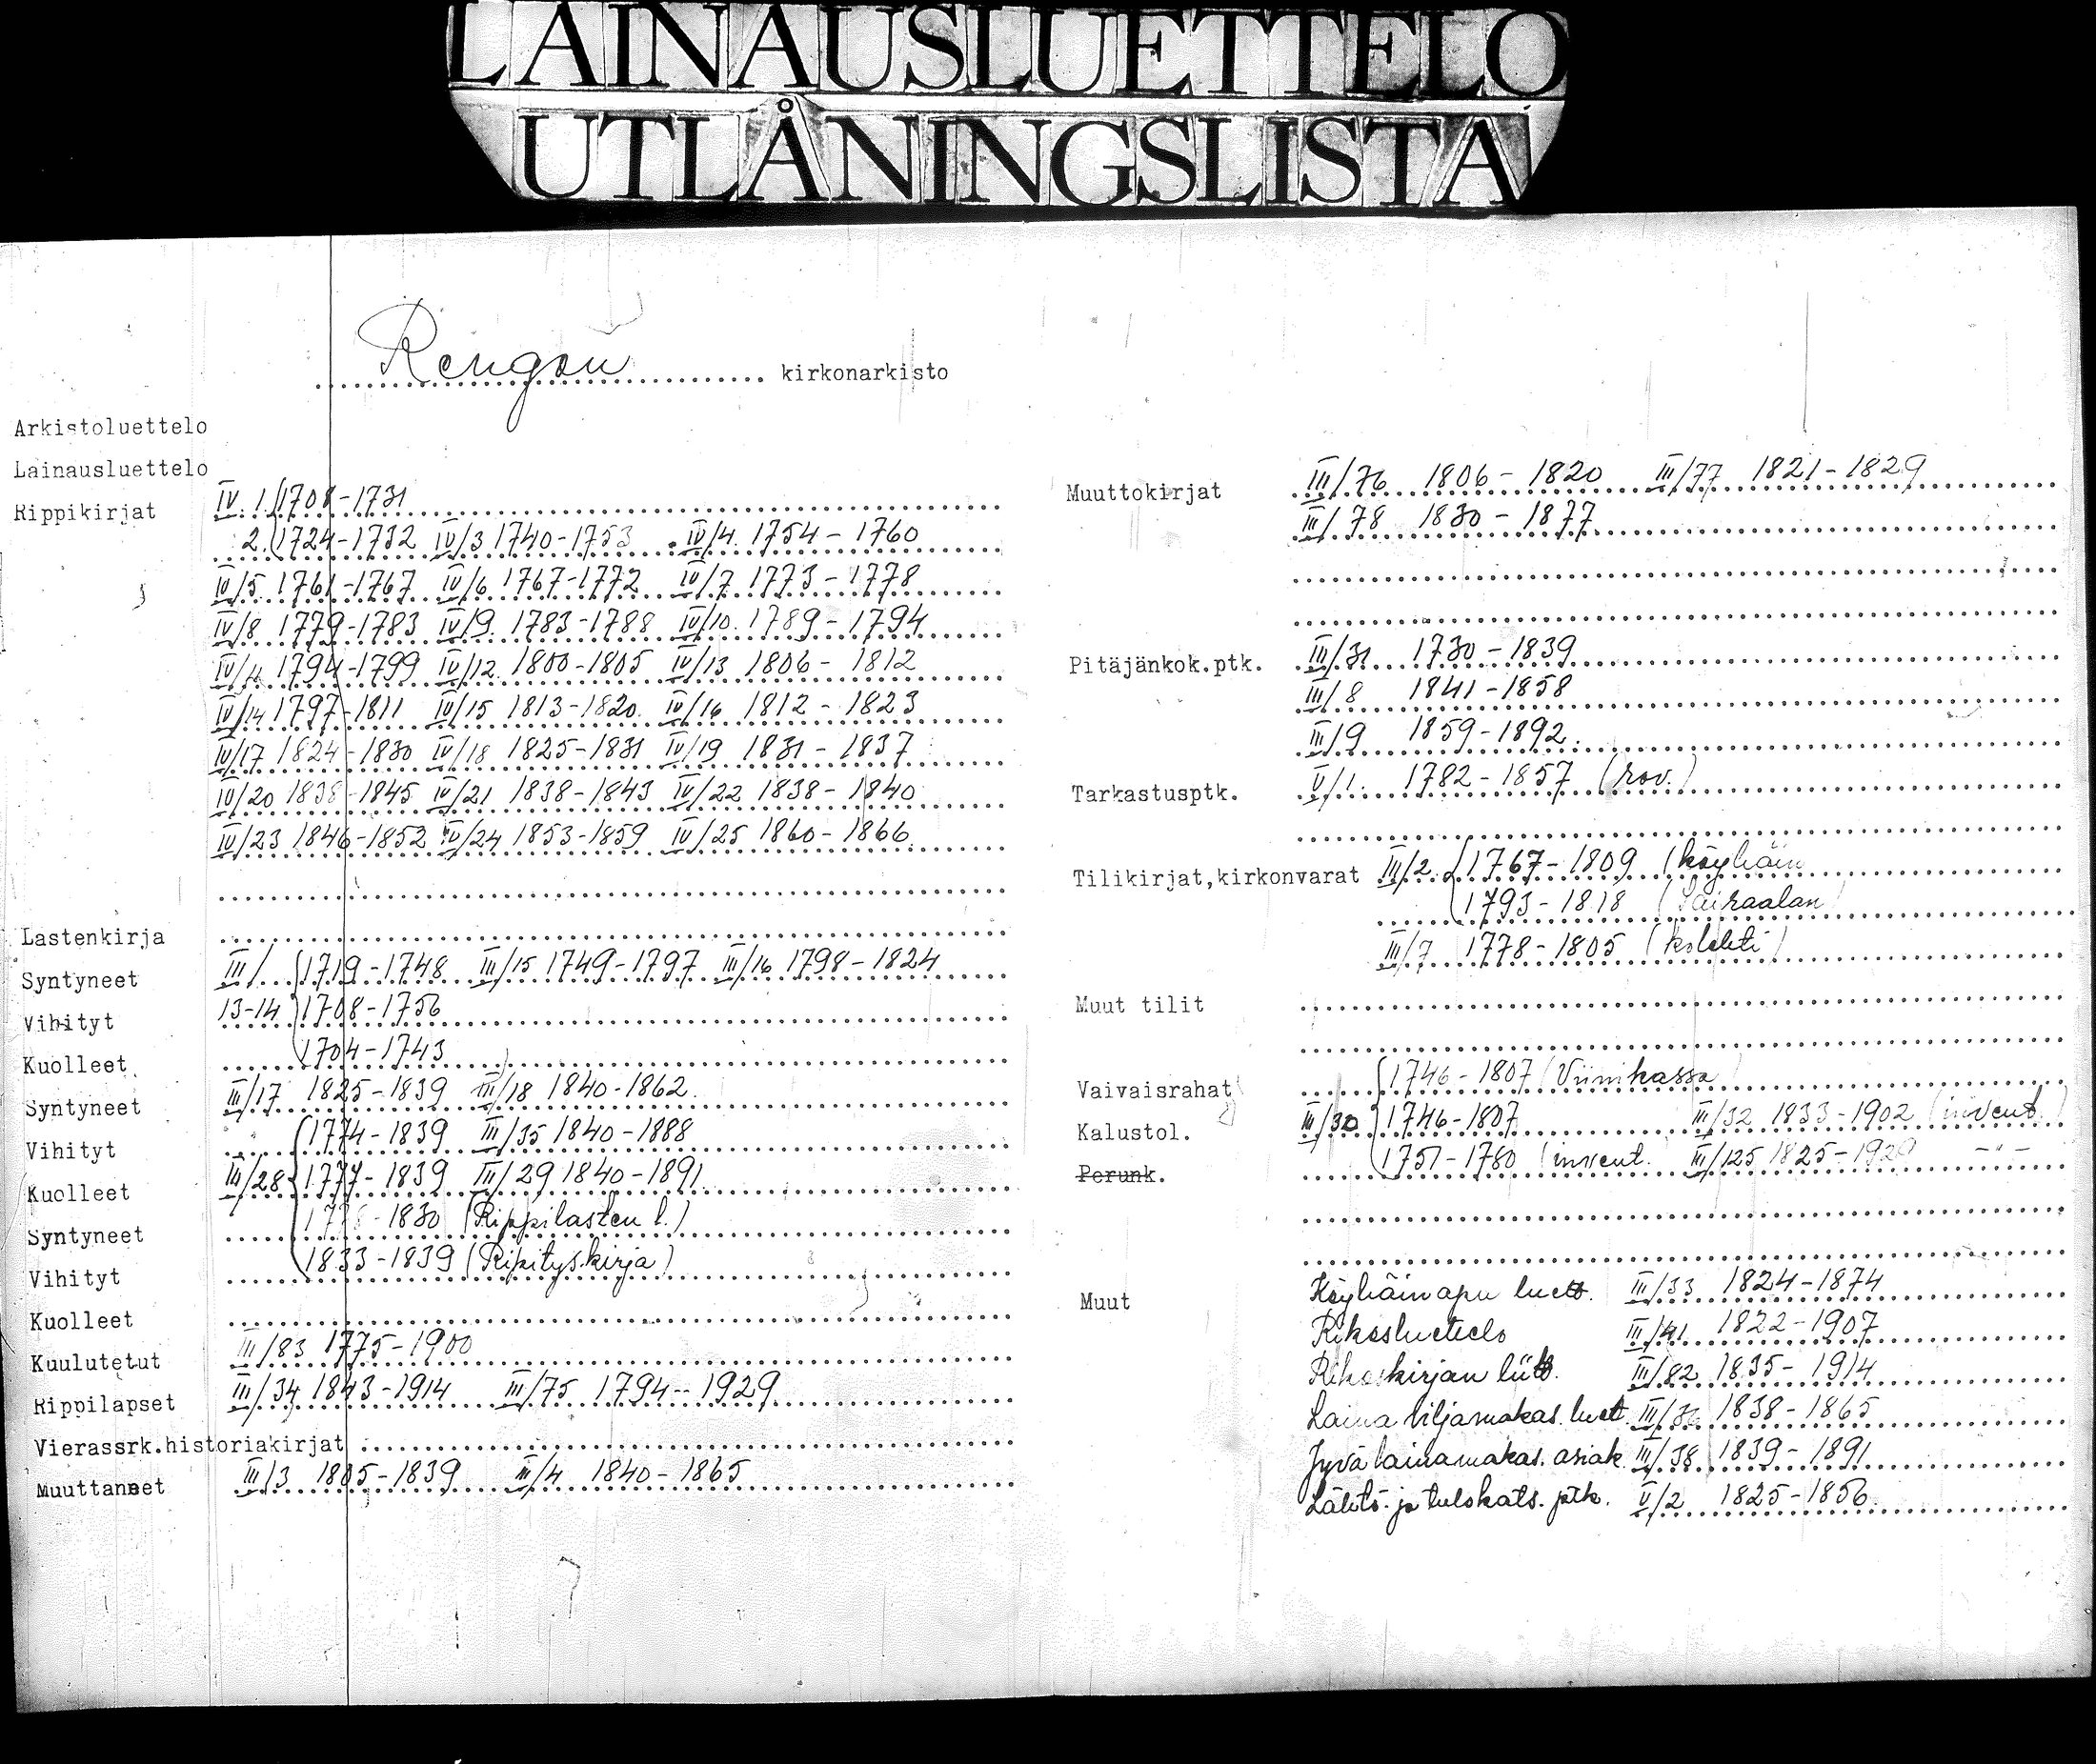 LAINAUSLUETTELO
UTLÅNINGSLISTA
Rengon kirkonarkisto
Arkistoluettelo
Lainausluettelo
Rippikirjat IV. 1. 1708-1731
2. 1724-1732 IV/3 1740-1753 IV/4 1754-1760
IV/5 1761-1767 IV/6 1767-1772 IV/7 1773-1778
IV/8 1779-1783 IV/9 1783-1788 IV/10 1789-1794
IV/11 1794-1799 IV/12 1800-1805 IV/13 1806-1812
IV/14 1797-1811 IV/15 1813-1820 IV/16 1812-1823
IV/17 1824-1830 IV/18 1825-1831 IV/19 1831-1837
IV/20 1838-1845 IV/21 1838-1843 IV/22 1838-1840
IV/23 1846-1852 IV/24 1853-1859 IV/25 1860-1866
Lastenkirja
Syntyneet III/ 1719-1748 III/15 1749-1797 III/16 1798-1824
Vihityt 13-14 1708-1756
Kuolleet 1704-1743
Syntyneet III/17 1825-1839 III/18 1840-1862
Vihityt 1774-1839 III/35 1840-1888
Kuolleet III/28 1777-1839 III/29 1840-1891
Syntyneet -1830 (Rippilasten l.)
Vihityt 1833-1839 (Ripityskirja)
Kuolleet
Kuulutetut III/83 1775-1900
Rippilapset III/34 1843-1914 III/75 1794-1929
Vierassrk.historiakirjat
Muuttaneet III/3 1805-1839 III/4 1840-1865
Muuttokirjat III/76 1806-1820 III/77 1821-1829
III/78 1830-1877
Pitäjänkok.ptk. III/31 1730-1839
III/8 1841-1858
III/9 1859-1892
Tarkastusptk. V/1. 1782-1857 (rov.)
Tilikirjat,kirkonvarat III/2 1767-1809 (köyhäin
1793-1818 (Sairaalan)
III/7 1778-1805 (kolehti)
Muut tilit
Vaivaisrahat 1746-1807 (Viinikassa)
Kalustol. III/30 1746-1807 III/32 1833-1902 (invent.)
Perunk. 1751-1780 (invent. III/125 1825-1929 -"-
Muut Köyhäinapu luett. III/33 1824-1874
Rikosluettelo III/41 1822-1907
Rikoskirjan liitt. III/82 1835-1914
Laina viljamakas. luett. III/36 1838-1865
Jyvä lainamakas. asiak. III/38 1839-1891
Lähtö- ja tulokats. ptk. V/2 1825-1856